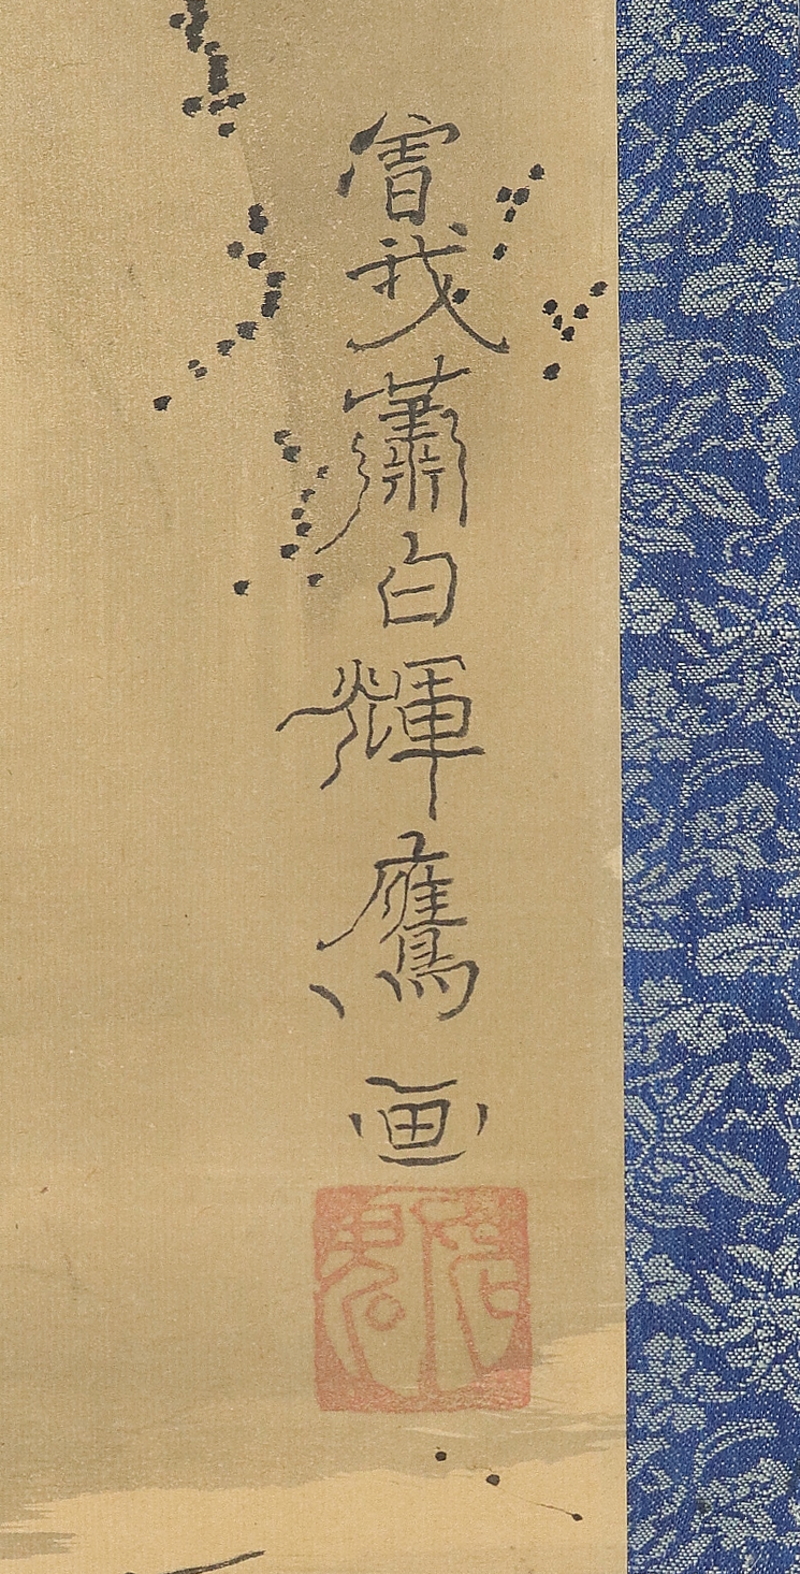 曾我蕭白輝鷹画